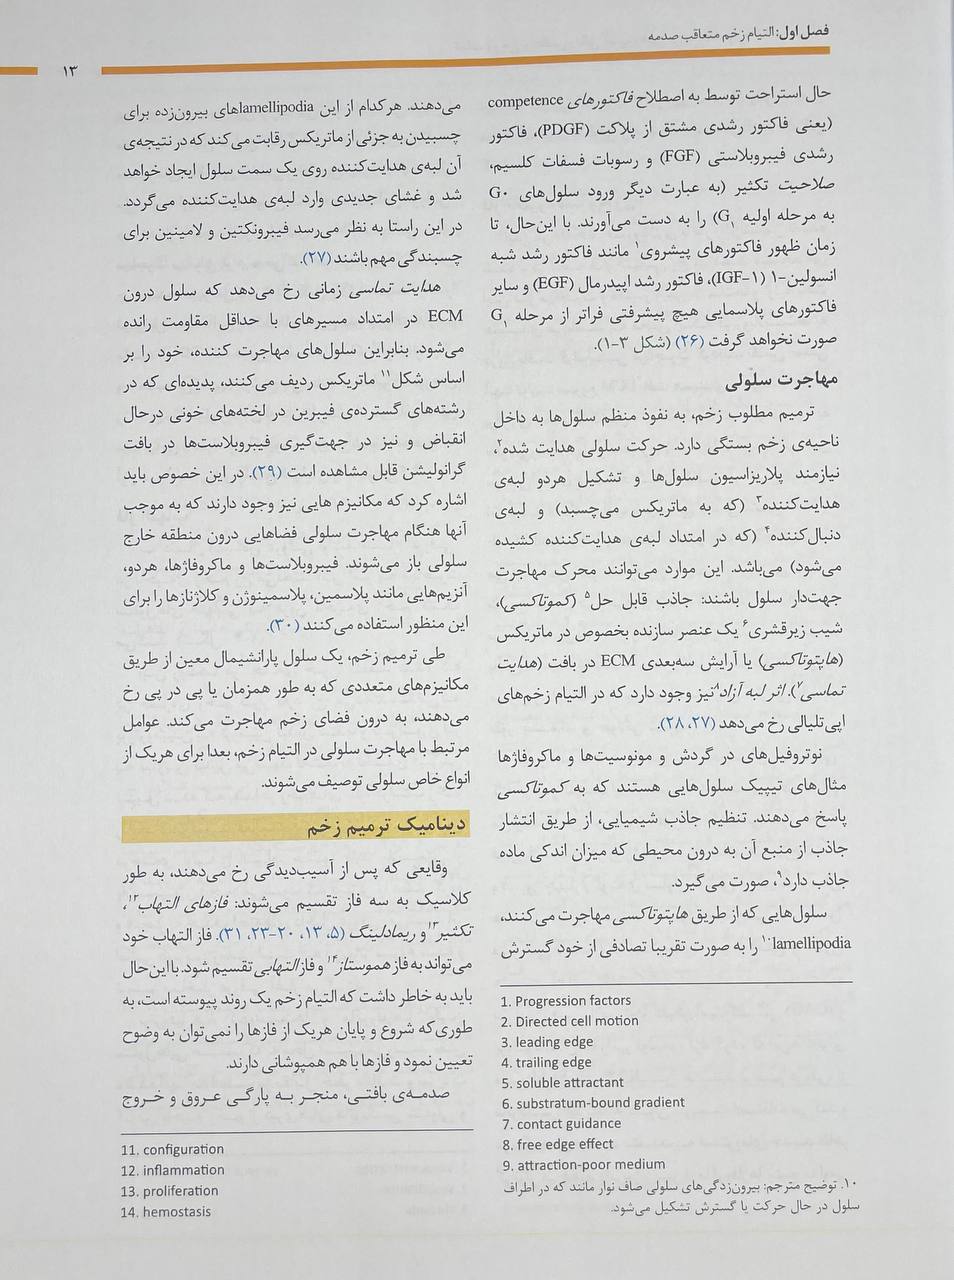 فصل اول: التیام زخم متعاقب صدمه
۱۳
حال استراحت توسط به اصطلاح فاکتورهای competence
(یعنی فاکتور رشدی مشتق از پلاکت (PDGF)، فاکتور
رشدی فیبروبلاستی (FGF) و رسوبات فسفات کلسیم،
صلاحیت تکثیر (به عبارت دیگر ورود سلول‌های G۰
به مرحله اولیه G۱) را به دست می‌آورند. با این‌حال، تا
زمان ظهور فاکتورهای پیشروی۱ مانند فاکتور رشد شبه
انسولین-۱ (IGF-۱)، فاکتور رشد اپیدرمال (EGF) و سایر
فاکتورهای پلاسمایی هیچ پیشرفتی فراتر از مرحله G۱
صورت نخواهد گرفت (۲۶) (شکل ۳-۱).
مهاجرت سلولی
ترمیم مطلوب زخم، به نفوذ منظم سلول‌ها به داخل
ناحیه‌ی زخم بستگی دارد. حرکت سلولی هدایت شده۲،
نیازمند پلاریزاسیون سلول‌ها و تشکیل هردو لبه‌ی
هدایت‌کننده۳ (که به ماتریکس می‌چسبد) و لبه‌ی
دنبال‌کننده۴ (که در امتداد لبه‌ی هدایت‌کننده کشیده
می‌شود) می‌باشد. این موارد می‌توانند محرک مهاجرت
جهت‌دار سلول باشند: جاذب قابل حل۵ (کموتاکسی)،
شیب زیرقشری۶ یک عنصر سازنده بخصوص در ماتریکس
(هاپتوتاکسی) یا آرایش سه‌بعدی ECM در بافت (هدایت
تماسی۷). اثر لبه آزاد۸ نیز وجود دارد که در التیام زخم‌های
اپی‌تلیالی رخ می‌دهد (۲۷، ۲۸).
نوتروفیل‌های در گردش و مونوسیت‌ها و ماکروفاژها
مثال‌های تیپیک سلول‌هایی هستند که به کموتاکسی
پاسخ می‌دهند. تنظیم جاذب شیمیایی، از طریق انتشار
جاذب از منبع آن به درون محیطی که میزان اندکی ماده
جاذب دارد۹، صورت می‌گیرد.
سلول‌هایی که از طریق هاپتوتاکسی مهاجرت می‌کنند،
lamellipodia۱۰ را به صورت تقریبا تصادفی از خود گسترش
1. Progression factors
2. Directed cell motion
3. leading edge
4. trailing edge
5. soluble attractant
6. substratum-bound gradient
7. contact guidance
8. free edge effect
9. attraction-poor medium
۱۰. توضیح مترجم: بیرون‌زدگی‌های سلولی صاف نوار مانند که در اطراف
سلول در حال حرکت یا گسترش تشکیل می‌شود.
می‌دهند. هرکدام از این lamellipodiaهای بیرون‌زده برای
چسبیدن به جزئی از ماتریکس رقابت می‌کند که در نتیجه‌ی
آن لبه‌ی هدایت‌کننده روی یک سمت سلول ایجاد خواهد
شد و غشای جدیدی وارد لبه‌ی هدایت‌کننده می‌گردد.
در این راستا به نظر می‌رسد فیبرونکتین و لامینین برای
چسبندگی مهم باشند (۲۷).
هدایت تماسی زمانی رخ می‌دهد که سلول درون
ECM در امتداد مسیرهای با حداقل مقاومت رانده
می‌شود. بنابراین سلول‌های مهاجرت کننده، خود را بر
اساس شکل۱۱ ماتریکس ردیف می‌کنند، پدیده‌ای که در
رشته‌های گسترده‌ی فیبرین در لخته‌های خونی درحال
انقباض و نیز در جهت‌گیری فیبروبلاست‌ها در بافت
گرانولیشن قابل مشاهده است (۲۹). در این خصوص باید
اشاره کرد که مکانیزم هایی نیز وجود دارند که به موجب
آنها هنگام مهاجرت سلولی فضاهایی درون منطقه خارج
سلولی باز می‌شوند. فیبروبلاست‌ها و ماکروفاژها، هردو،
آنزیم‌هایی مانند پلاسمین، پلاسمینوژن و کلاژنازها را برای
این منظور استفاده می‌کنند (۳۰).
طی ترمیم زخم، یک سلول پارانشیمال معین از طریق
مکانیزم‌های متعددی که به طور همزمان یا پی در پی رخ
می‌دهند، به درون فضای زخم مهاجرت می‌کند. عوامل
مرتبط با مهاجرت سلولی در التیام زخم، بعدا برای هریک از
انواع خاص سلولی توصیف می‌شوند.
دینامیک ترمیم زخم
وقایعی که پس از آسیب‌دیدگی رخ می‌دهند، به طور
کلاسیک به سه فاز تقسیم می‌شوند: فازهای التهاب۱۲،
تکثیر۱۳ و ریمادلینگ (۵، ۱۳، ۲۰-۲۳، ۳۱). فاز التهاب خود
می‌تواند به فاز هموستاز۱۴ و فاز التهابی تقسیم شود. با این‌حال
باید به خاطر داشت که التیام زخم یک روند پیوسته است، به
طوری‌که شروع و پایان هریک از فازها را نمی‌توان به وضوح
تعیین نمود و فازها با هم همپوشانی دارند.
صدمه‌ی بافتی، منجر به پارگی عروق و خروج
11. configuration
12. inflammation
13. proliferation
14. hemostasis